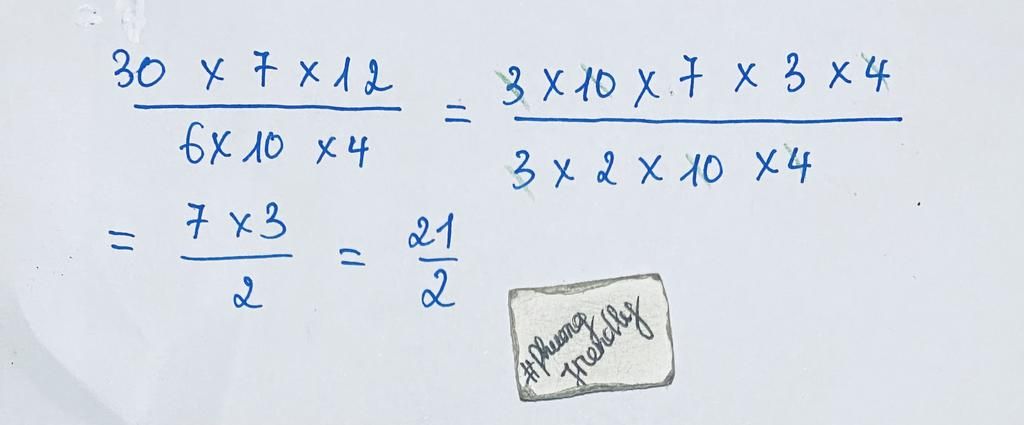 30 × 7 × 12 / 6 × 10 × 4 = 3 × 10 × 7 × 3 × 4 / 3 × 2 × 10 × 4
= 7 × 3 / 2 = 21 / 2
#Phuong
friendly